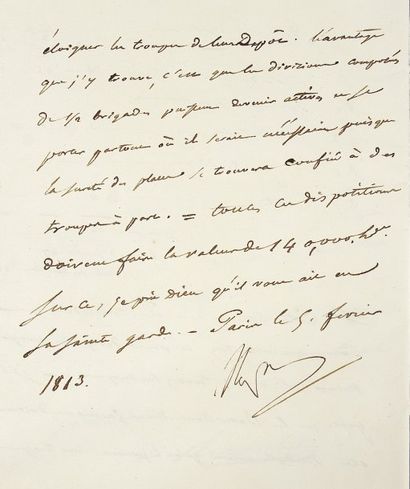 éloigner les troupes de leur Dépôt. L'avantage
que j'y trouve, c'est que les divisions composées
de 1/2 brigades puissent devenir actives et se
porter partout où il serait nécessaire puisque
la sureté des places se trouvera confiée à des
troupes à part. = toutes ces dispositions
doivent faire la valeur de 140,000. h.es
sur ce, je prie dieu qu'il vous ait en
sa sainte garde. – Paris le 5. fevrier
1813.
Nap